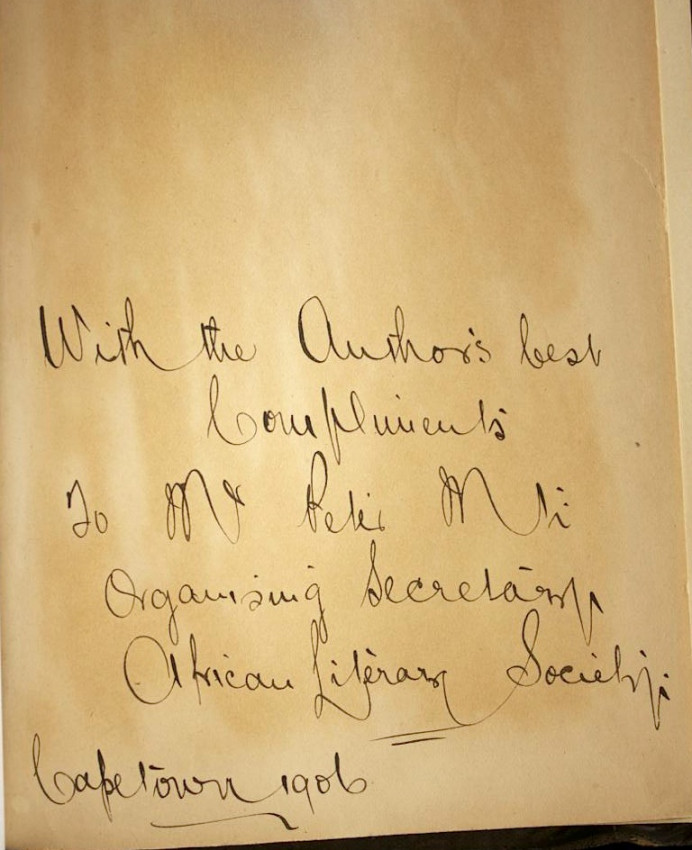 With the Author's best
Compliments
To Mr Peter Mti
Organising Secretary
African Literary Society.
Capetown 1906